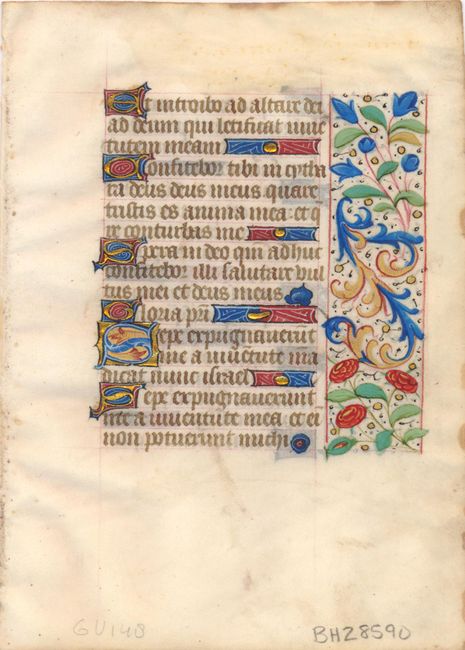 Et introibo ad altare dei
ad deum qui letificat iuue
tutem meam
Confitebor tibi in cytha
ra deus deus meus quare
tristis es anima mea : et q
re conturbas me
Spera in deo qn adhuc
confitebor illi salutare vul
tus mei et deus meus
Gloria pri
Sepe expugnauerūt
me a iuuētute mea
dicat nunc israel
Sepe expugnauerunt
me a iuuentute mea et ei
non potuerunt michi
GU148
BH28590